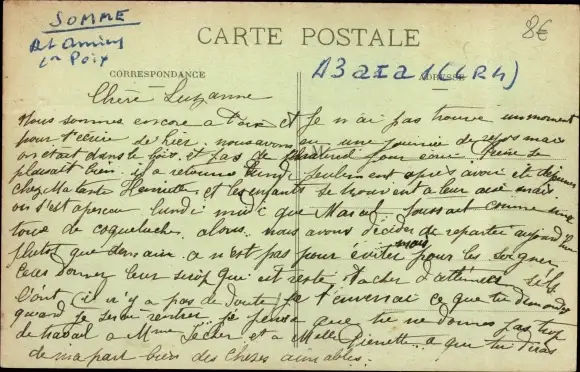 SOMME
Ar. Amiens
Cn Poix
8€
CARTE POSTALE
CORRESPONDANCE
ADRESSE
Chère Suzanne
Nous sommes encore a Poix et Je n'ai pas trouvé un moment
pour t'écrire de hier, nous avons eu une journée de repos mais
on était dans le bois et pas de pour écrire Reine se
plaisait bien. il a retourné lundi seulement après avoir été déjeuner
chez Ma tante Henriette et les enfants se trouvent a leur aise mais
on s'est aperçu lundi midi que Marcel toussait comme une
toux de coqueluche, alors nous avons décidé de repartir aujourd'hui
plutôt que demain. ce n'est pas pour éviter mais pour les soigner
Leur donner leur sirop qui est resté
il n'y a pas de doute ça ce que tu
quand je serai rentrée. je pense que tu ne donnes pas trop
de travail a Mme et a Melle Pierrette a que tu diras
de ma part bien des choses aimables.